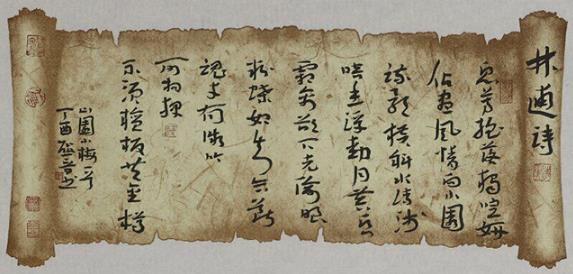 林逋诗
众芳摇落独喧妍
占尽风情向小园
疏影横斜水清浅
暗香浮动月黄昏
霜禽欲下先偷眼
粉蝶如知合断
魂幸有微吟
可相狎
不须檀板共金樽
山园小梅一首
丁酉 书